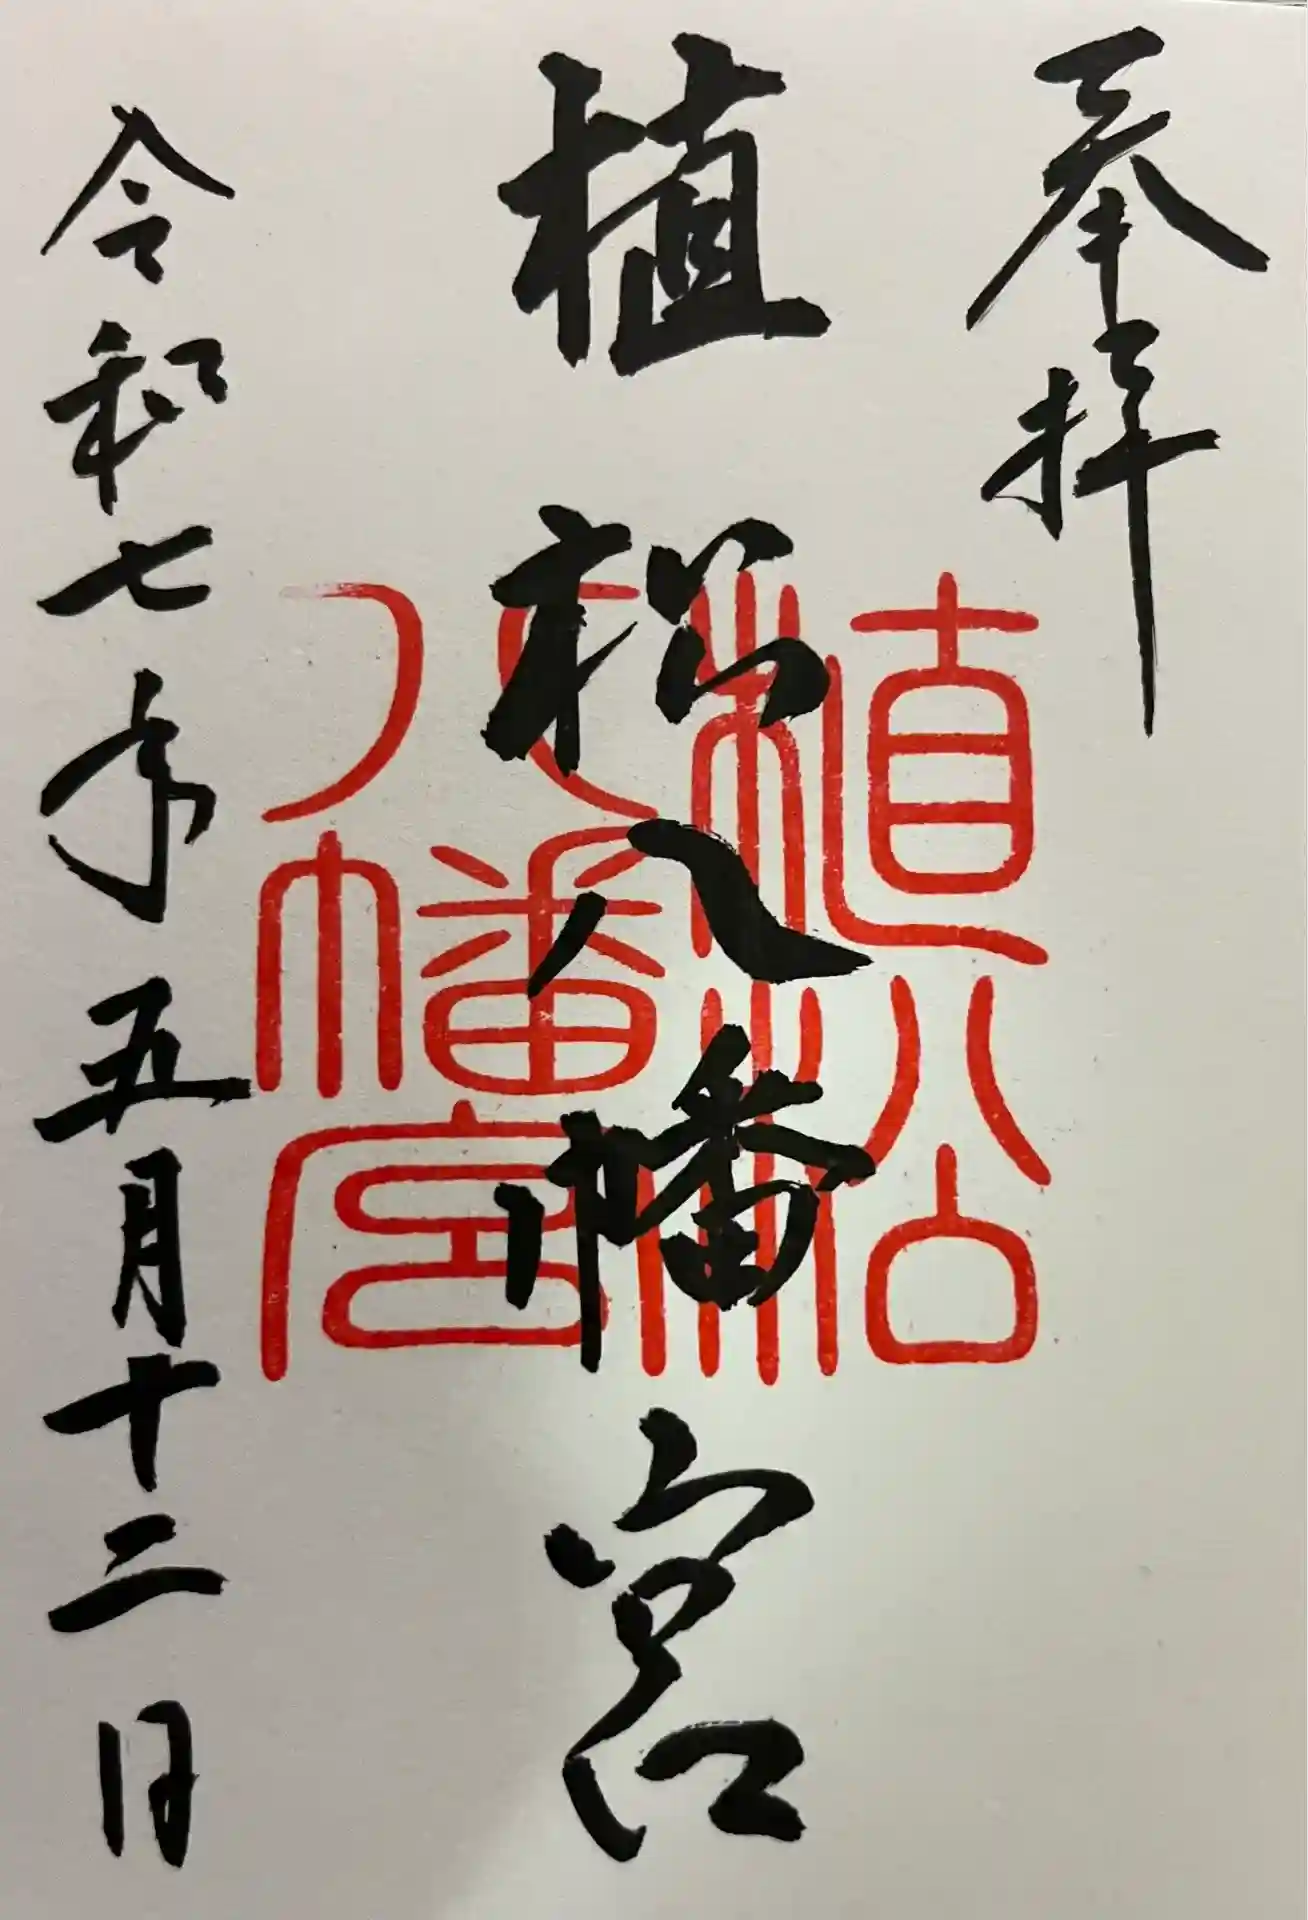 奉拝
植松八幡宮
植松
八幡宮
令和七年五月十二日